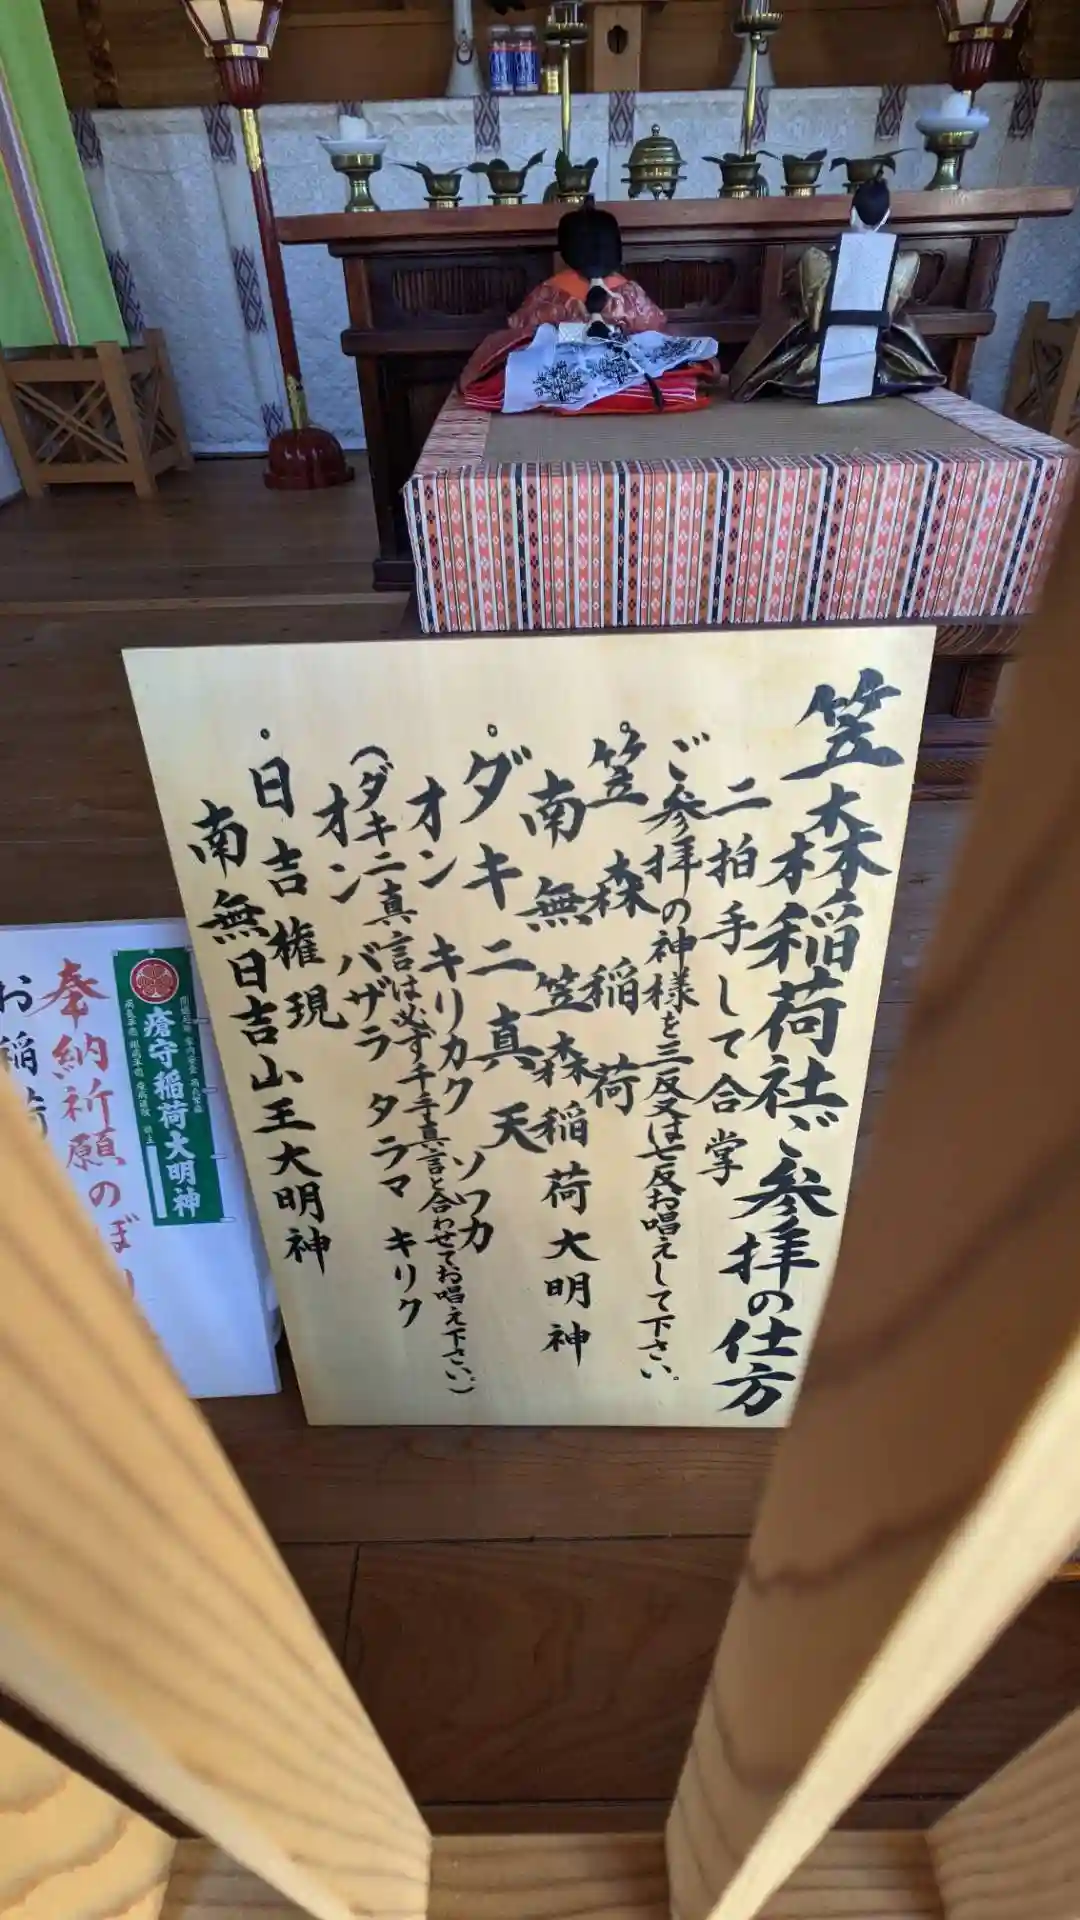 笠森稲荷社ご参拝の仕方
二拍手して合掌
ご参拝の神様を三反又は七反お唱えして下さい。
笠森稲荷
南無笠森稲荷大明神
ダキニ真天
オン キリカク ソワカ
(ダキニ真言は必ず千手真言と合わせてお唱え下さい。)
オン バザラ タラマ キリク
日吉権現
南無日吉山王大明神
瘡守稲荷大明神
奉納祈願のぼり
お稲荷